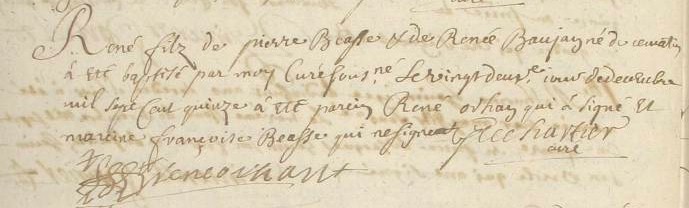 René filz de pierre Beasse & de Renée Baujan né de ce matin
à été baptisé par moy Curé sous.né Le vingt deux.e iour de decembre
mil sept Cent quinze à été parein René ochan qui à signé Et
mareine françoise Beasse qui ne signe FLechartier
curé
Rene ochant